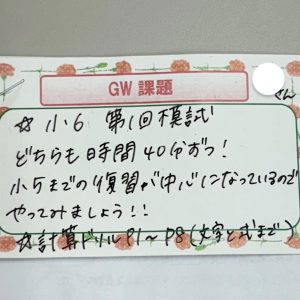 GW 課題
くん
☆ 小6 第1回模試
どちらも時間40分ずつ!
小5までの復習が中心になっているので
やってみましょう!!
☆計算ドリル P1〜P8(文字と式まで)